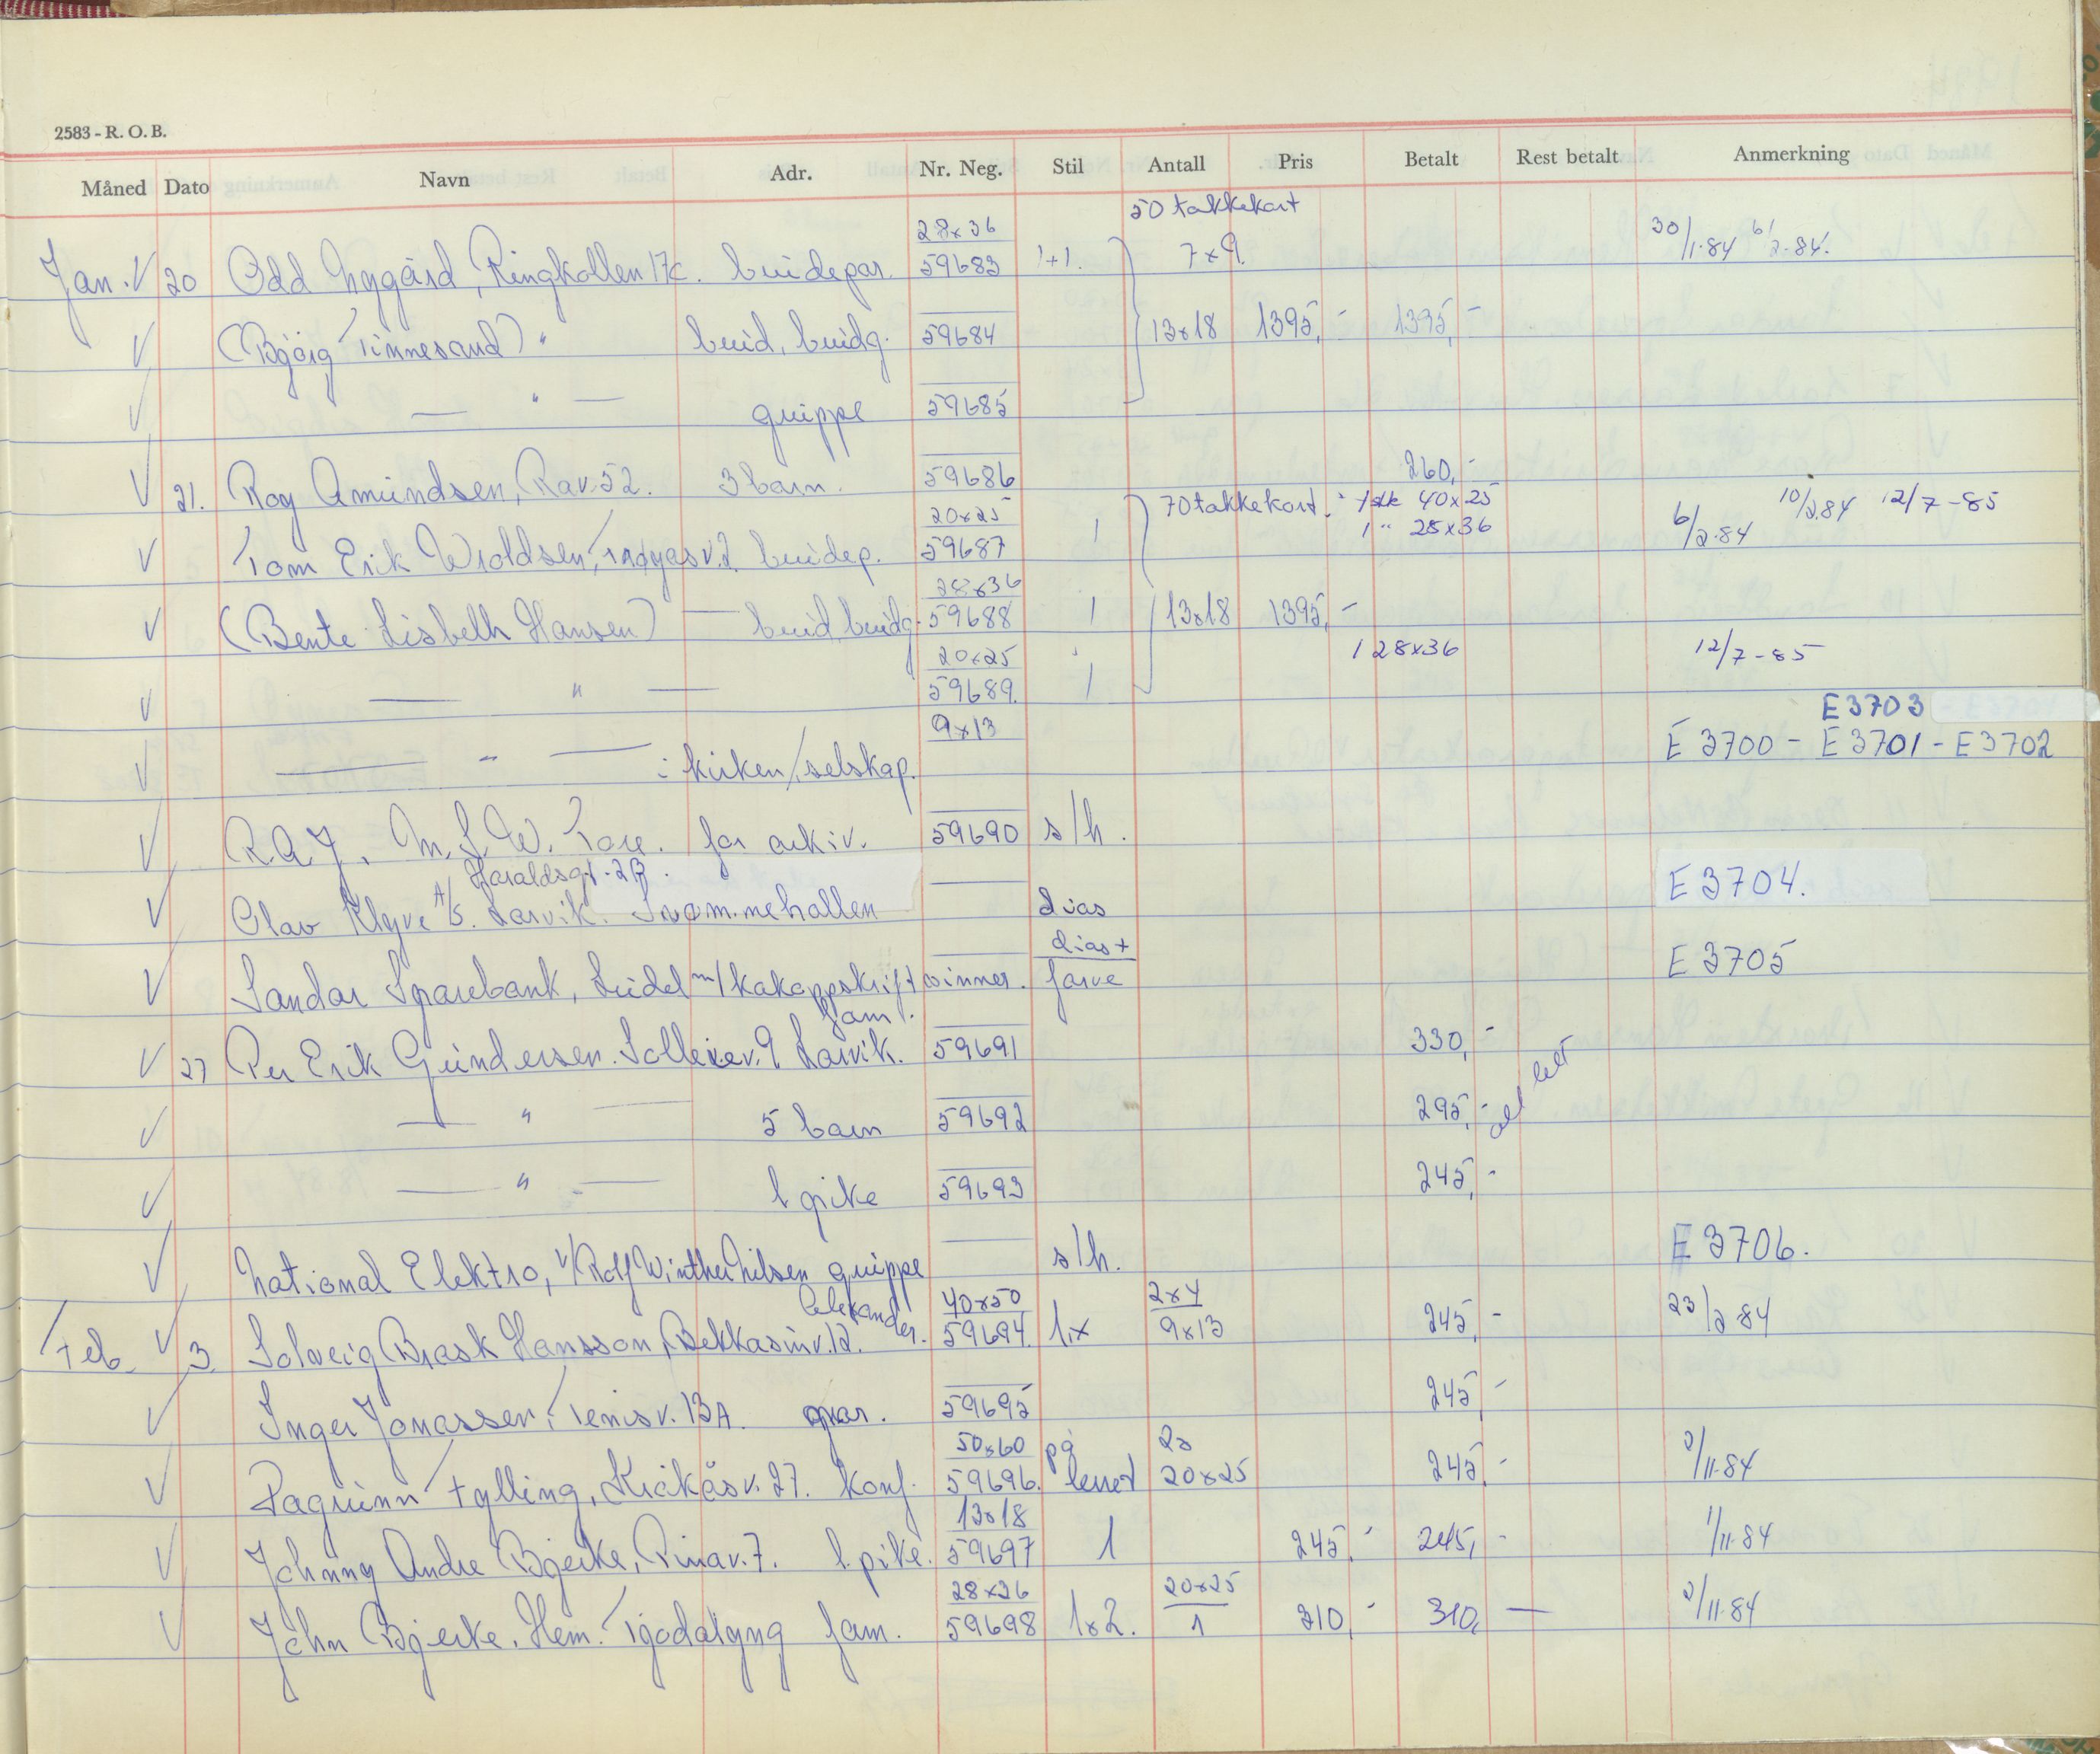 2583 - R. O. B.
Måned Dato Navn Adr. Nr. Neg. Stil Antall Pris Betalt Rest betalt Anmerkning
28x36 50 takkekort
Jan. V 20 Odd Nygård, Ringkollen 17c. brudepar. 59683 1+1. 7x9. 30/1-84 6/2-84.
V (Bjørg Tinnesand) " brud, brudg. 59684 13x18 1395,- 1395,-
V — " — gruppe 59685
V 21. Roy Amundsen, Rav. 52. 3 barn. 59686 260,-
20x25 70 takkekort. 1 stk 40x25 10/2.84 12/7-85
V Tom Erik Wroldsen, v. 2. brudep. 59687 1 1 " 28x36 6/2-84
28x36
V (Bente Lisbeth Hansen) — brud, brudg. 59688 1 13x18 1395,-
20x25 1 28x36 12/7-85
V — " — 59689. 1
9x13 E3703
V — " — : kirken/selskap. E 3700 - E3701 - E3702
V R.A.J. M.S.W. Tore. for arkiv. 59690 s/h.
Haraldsgt. 2B. E 3704.
V Olav Klyve A/S. Larvik. Svømmehallen dias
dias +
V Sandar Sparebank, m/ vinner. farve E 3705
fam.
V 27 Per Erik Gundersen. 9. Larvik. 59691 330,-
V — " — 5 barn 59692 295,-
V — " — 1 pike 59693 245,-
V National Elektro, v/Rolf Winther Nilsen gruppe s/h. E 3706.
40x50 2x4
Feb. V 3. Solveig Brask Hansson, Bekkasinv. 12. 59694. 1.x 9x13 245,- 23/2-84
V Inger Jonassen, Tenisv. 13A. par. 59695 245,-
50x60 på 2s
V Paguinn Fylling, Kråkåsv. 27. konf. 59696. lerret 20x25 245,- 2/11-84
13x18
V Johnny Andre Bjerke, Furuv. 7. 1 pike. 59697 1 245,- 245,- 1/11-84
28x36 20x25
V John Bjerke. Hem. Tjodalyng fam. 59698 1x2. 1 310,- 310,- 2/11-84